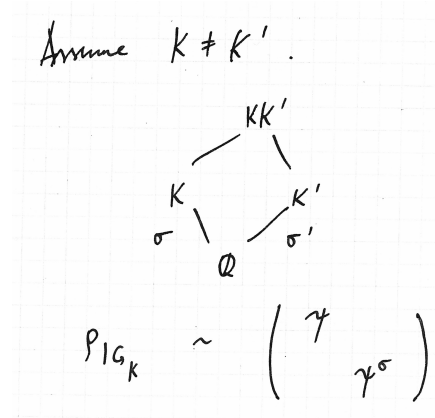 Assume K ≠ K'.
KK'
K K'
σ σ'
ℚ
ρ|G_K ~ ( ψ ψ^σ )